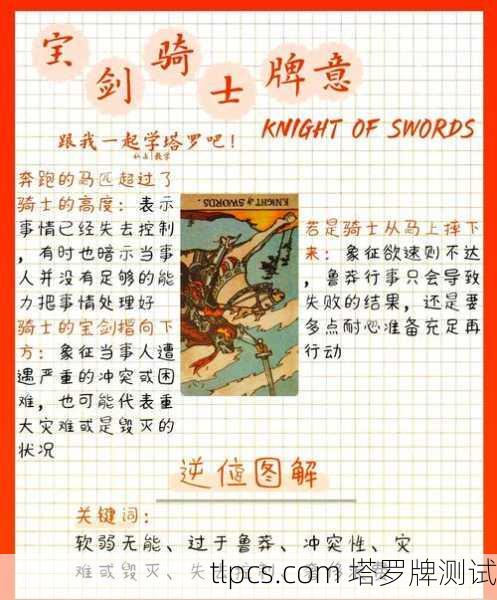 宝剑骑士牌意
KNIGHT OF SWORDS
跟我一起学塔罗吧！
奔跑的马匹超过了
骑士的高度：表示
事情已经失去控制
，有时也暗示当事
人并没有足够的能
力把事情处理好
骑士的宝剑指向下
方：象征当事人遭
遇严重的冲突或困
难，也可能代表重
大灾难或是毁灭的
状况
KNIGHT of SWORDS.
若是骑士从马上摔下
来：象征欲速则不达
，鲁莽行事只会导致
失败的结果，还是要
多点耐心准备充足再
行动
逆位图解
关键词：
软弱无能、过于鲁莽、冲突性、灾
难或毁灭、失去控制
tlpcs.com 塔罗牌测试